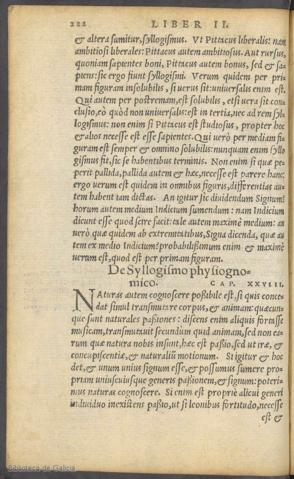 222 LIBER II.
& altera sumitur, syllogismus. Vt Pittacus liberalis: nam
ambitiosi liberales: Pittacus autem ambitiosus. Aut rursus,
quoniam sapientes boni, Pittacus autem bonus, sed & sa-
piens: sic ergo fiunt syllogismi. Verum quidem per pri-
mam figuram insolubilis, si uerus sit: uniuersalis enim est.
Qui autem per postremam, est solubilis, etsi uera sit con-
clusio, eò quòd non uniuersalis: est in tertia, nec ad rem syl-
logismus: non enim si Pittacus est studiosus, propter hoc
& alios necesse est esse sapientes. Qui uerò per mediam fi-
guram est semper & omnino solubilis: nunquam enim syllo
gismus fit, sic se habentibus terminis. Non enim si quæ pe-
perit pallida, pallida autem & hæc, necesse est parere hanc:
ergo uerum est quidem in omnibus figuris, differentias au-
tem habent iam dictas. An igitur sic diuidendum Signum:
horum autem medium Indicium sumendum: nam Indicium
dicunt esse quod scire facit: tale autem maximè medium: an
uerò quæ quidem ab extremitatibus, Signa dicenda, quæ au
tem ex medio Indicium: probabilissimum enim & maximè
uerum est, quod est per primam figuram.
De Syllogismo physiogno-
mico. CAP. XXVIII.
NAturas autem cognoscere possibile est, si quis conce-
dat simul transmutare corpus, & animam: quæcun-
que sunt naturales passiones: discens enim aliquis fortasse
musicam, transmutauit secundum quid animam, sed non ea-
rum quæ natura nobis insunt, hæc est passio, sed ut iræ, &
concupiscentiæ, & naturalium motionum. Si igitur & hoc
det, & unum unius signum esse, & possumus sumere pro-
priam uniuscuiusque generis passionem, & signum: poteri-
mus naturas cognoscere. Si enim est propriè alicui generi
indiuiduo inexistens passio, ut si leonibus fortitudo, necesse
est &
Biblioteca de Galicia